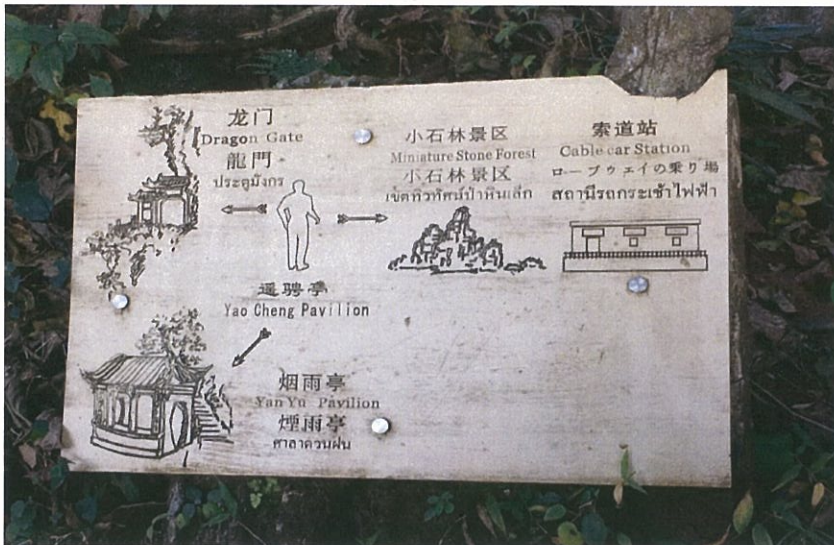 龙门
Dragon Gate
龍門
ประตูมังกร
小石林景区
Miniature Stone Forest
小石林景区
เขตทิวทัศน์ป่าหินเล็ก
索道站
Cable car Station
ロープウェイの乗り場
สถานีรถกระเช้าไฟฟ้า
遥骋亭
Yao Cheng Pavilion
烟雨亭
Yan Yu Pavilion
煙雨亭
ศาลาควนฝน